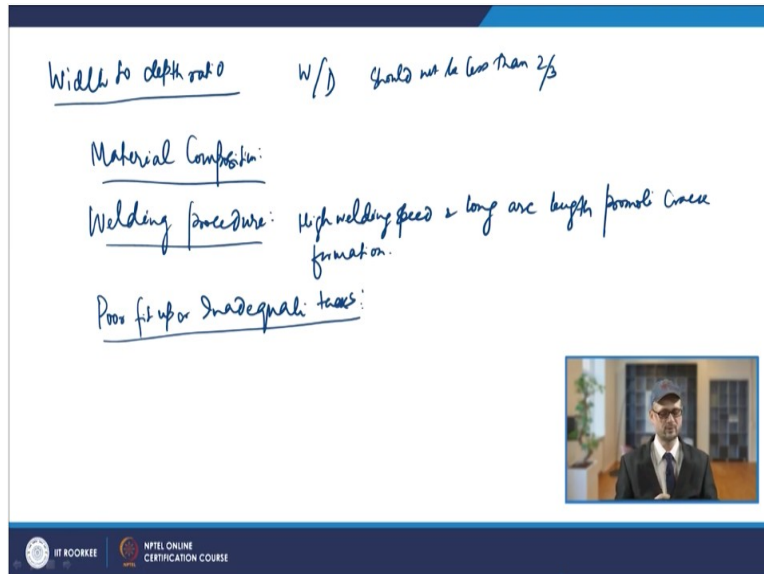 Width to depth ratio W/D should not be less than 2/3
Material Composition:
Welding procedure: High welding speed & long arc length promote crack
formation.
Poor fit up or Inadequate tacks:
IIT ROORKEE
NPTEL ONLINE
CERTIFICATION COURSE